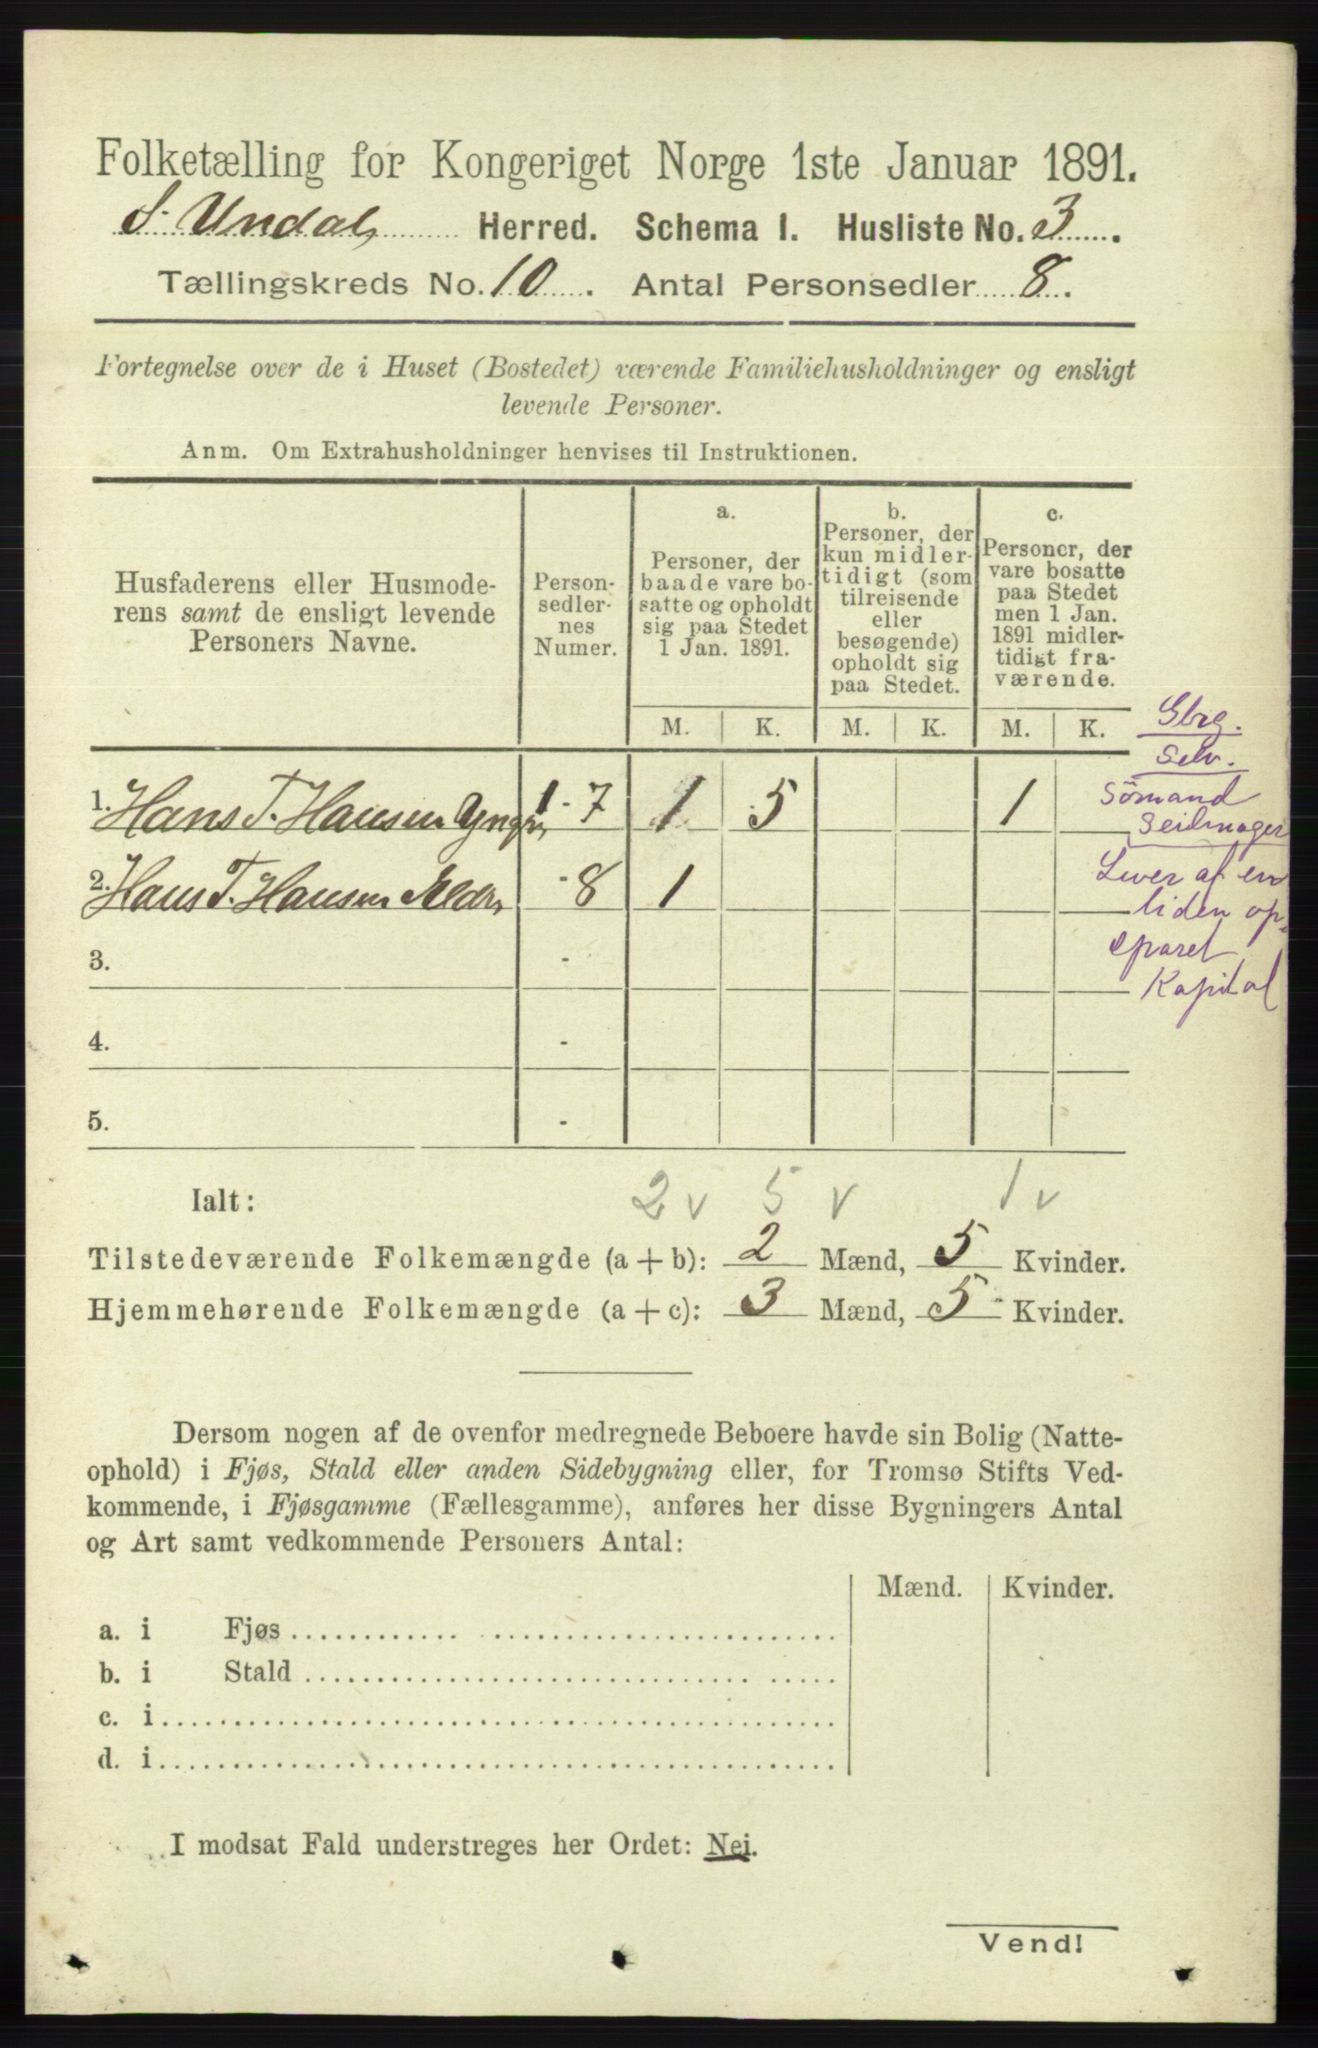 Folketælling for Kongeriget Norge 1ste Januar 1891.
S. Undal Herred. Schema I. Husliste No. 3.
Tællingskreds No. 10. Antal Personsedler 8.
Fortegnelse over de i Huset (Bostedet) værende Familiehusholdninger og ensligt
levende Personer.
Anm. Om Extrahusholdninger henvises til Instruktionen.
Husfaderens eller Husmode-
rens samt de ensligt levende
Personers Navne.
Person-
sedler-
nes
Numer.
a.
Personer, der
baade vare bo-
satte og opholdt
sig paa Stedet
1 Jan. 1891.
b.
Personer, der
kun midler-
tidigt (som
tilreisende
eller
besøgende)
opholdt sig
paa Stedet.
c.
Personer, der
vare bosatte
paa Stedet
men 1 Jan.
1891 midler-
tidigt fra-
værende.
M. K. M. K. M. K.
Gbrg.
Selv.
Sömand
Seilmager
1. Hans T. Hansen Yngr, 1 - 7 1 5 1
2. Hans T. Hansen Ældr, - 8 1
Lever af en
liden op-
sparet
Kapital
3. -
4. -
5. -
Ialt: 2 v 5 v 1 v
Tilstedeværende Folkemængde (a + b): 2 Mænd, 5 Kvinder.
Hjemmehørende Folkemængde (a + c): 3 Mænd, 5 Kvinder.
Dersom nogen af de ovenfor medregnede Beboere havde sin Bolig (Natte-
ophold) i Fjøs, Stald eller anden Sidebygning eller, for Tromsø Stifts Ved-
kommende, i Fjøsgamme (Fællesgamme), anføres her disse Bygningers Antal
og Art samt vedkommende Personers Antal:
Mænd. Kvinder.
a. i Fjøs
b. i Stald
c. i
d. i
I modsat Fald understreges her Ordet: Nei.
Vend!